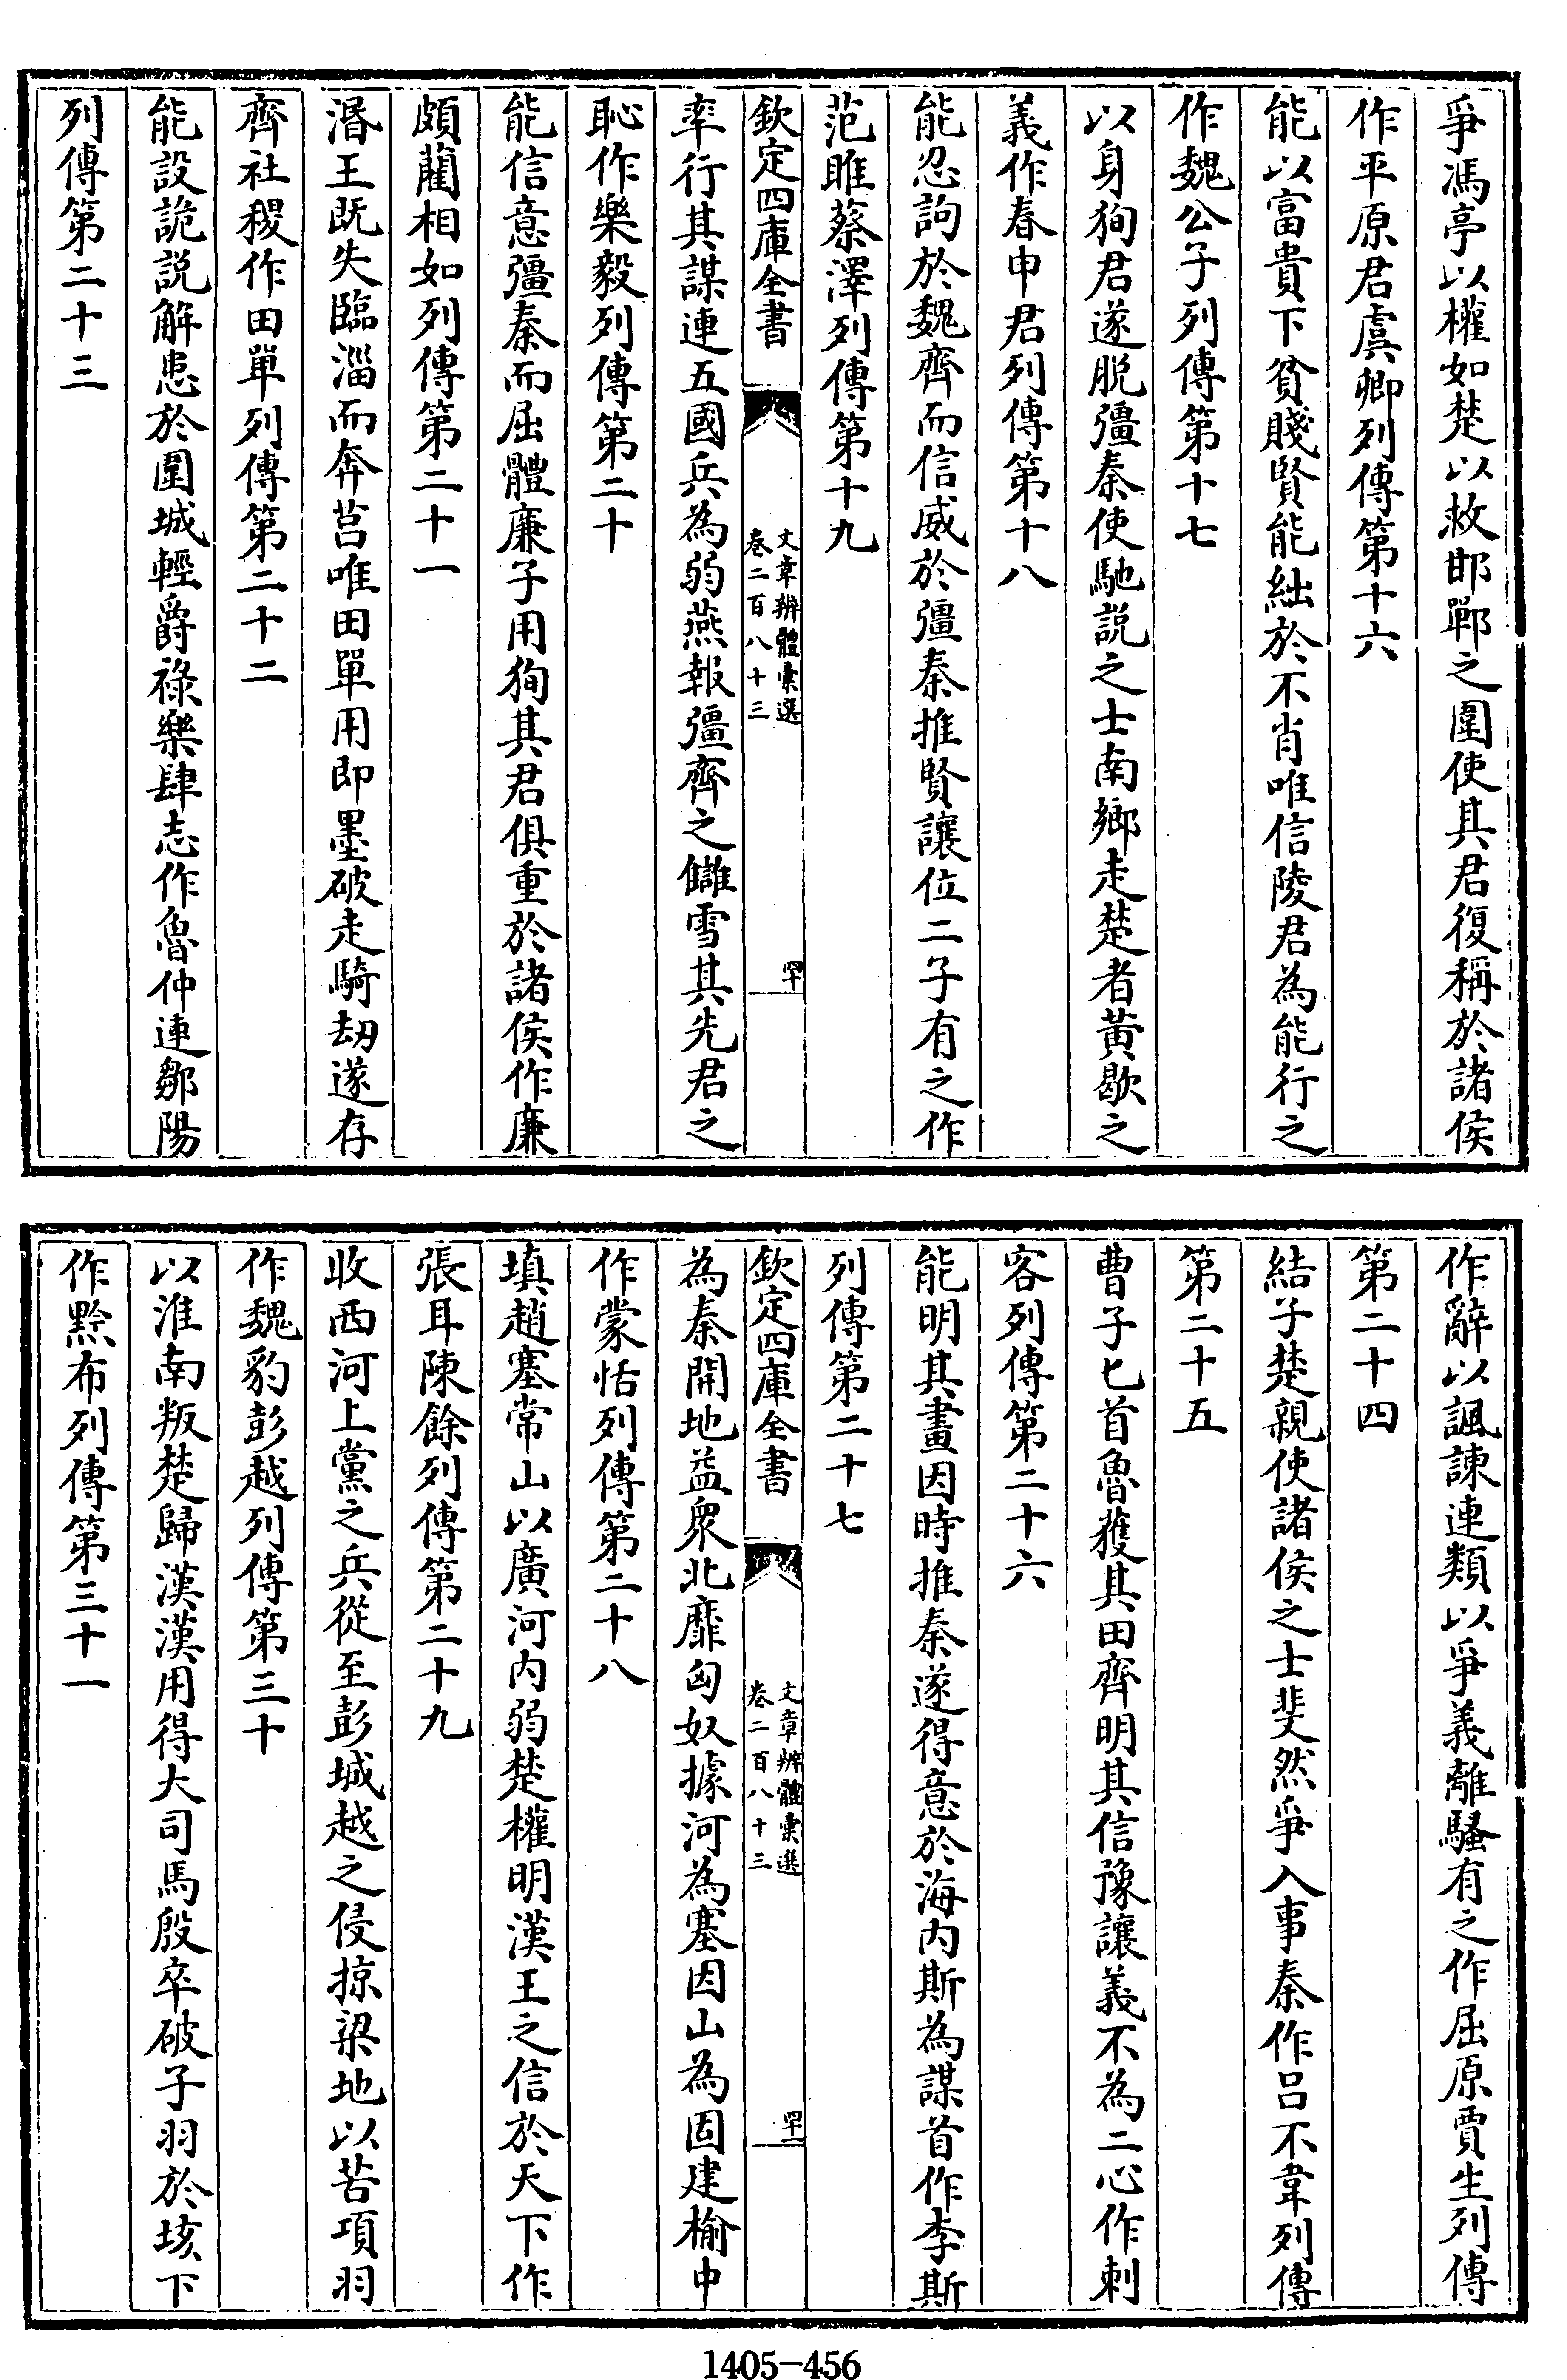 爭馮亭以權如楚以救邯鄲之圍使其君復稱於諸侯
作平原君虞卿列傳第十六
能以富貴下貧賤賢能絀於不肖唯信陵君為能行之
作魏公子列傳第十七
以身狥君遂脱彊秦使馳説之士南鄉走楚者黄歇之
義作春申君列傳第十八
能忍訽於魏齊而信威於彊秦推賢讓位二子有之作
范雎蔡澤列傳第十九
欽定四庫全書
文章辨體彚選
卷二百八十三
四十
率行其謀連五國兵為弱燕報彊齊之讎雪其先君之
恥作樂毅列傳第二十
能信意彊秦而屈體廉子用狥其君俱重於諸侯作廉
頗藺相如列傳第二十一
湣王既失臨淄而奔莒唯田單用即墨破走騎劫遂存
齊社稷作田單列傳第二十二
能設詭説解患於圍城輕爵祿樂肆志作魯仲連鄒陽
列傳第二十三
作辭以諷諫連類以爭義離騷有之作屈原賈生列傳
第二十四
結子楚親使諸侯之士斐然爭入事秦作吕不韋列傳
第二十五
曹子匕首魯獲其田齊明其信豫讓義不為二心作刺
客列傳第二十六
能明其畫因時推秦遂得意於海内斯為謀首作李斯
列傳第二十七
欽定四庫全書
文章辨體彚選
卷二百八十三
四十一
為秦開地益衆北靡匈奴據河為塞因山為固建榆中
作蒙恬列傳第二十八
填趙塞常山以廣河内弱楚權明漢王之信於天下作
張耳陳餘列傳第二十九
收西河上黨之兵從至彭城越之侵掠梁地以苦項羽
作魏豹彭越列傳第三十
以淮南叛楚歸漢漢用得大司馬殷卒破子羽於垓下
作黥布列傳第三十一
1405-456